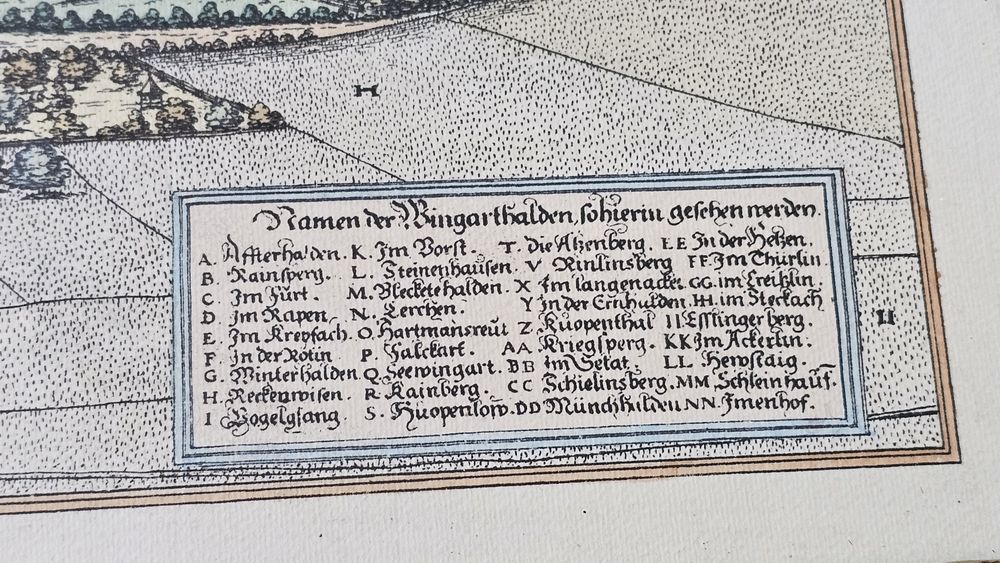 H
Namen der Wingarthalden, so hierin gesehen werden.
A. Affterhalden. K. Im Vorst. T. die Atzenberg. EE In der Hetzen.
B Rainsperg. L. Steinenhausen. V Rinlinsberg FF Im Thurlin
C Im Furt. M. Bleckete halden. X Im langenacke. GG. im Creißlin
D im Rapen N. Lerchen. Y in der Ernhulden HH. im Steckach
E Im Kropfach. O. Hartmansreut Z. Kuopenthal II Esslingerberg.
F In der Rötin P. Falckart. AA. Kriegsperg. KK Im Ackerlin.
G. Winterhalden. Q. Seewingart. BB im LL Hewstaig.
H. Reckenwisen. R. Rainberg. CC Schielinsberg. MM Schleinhauf.
I Vogelsang S. Huopenlow. DD Münchhilden NN. Imenhof.
II